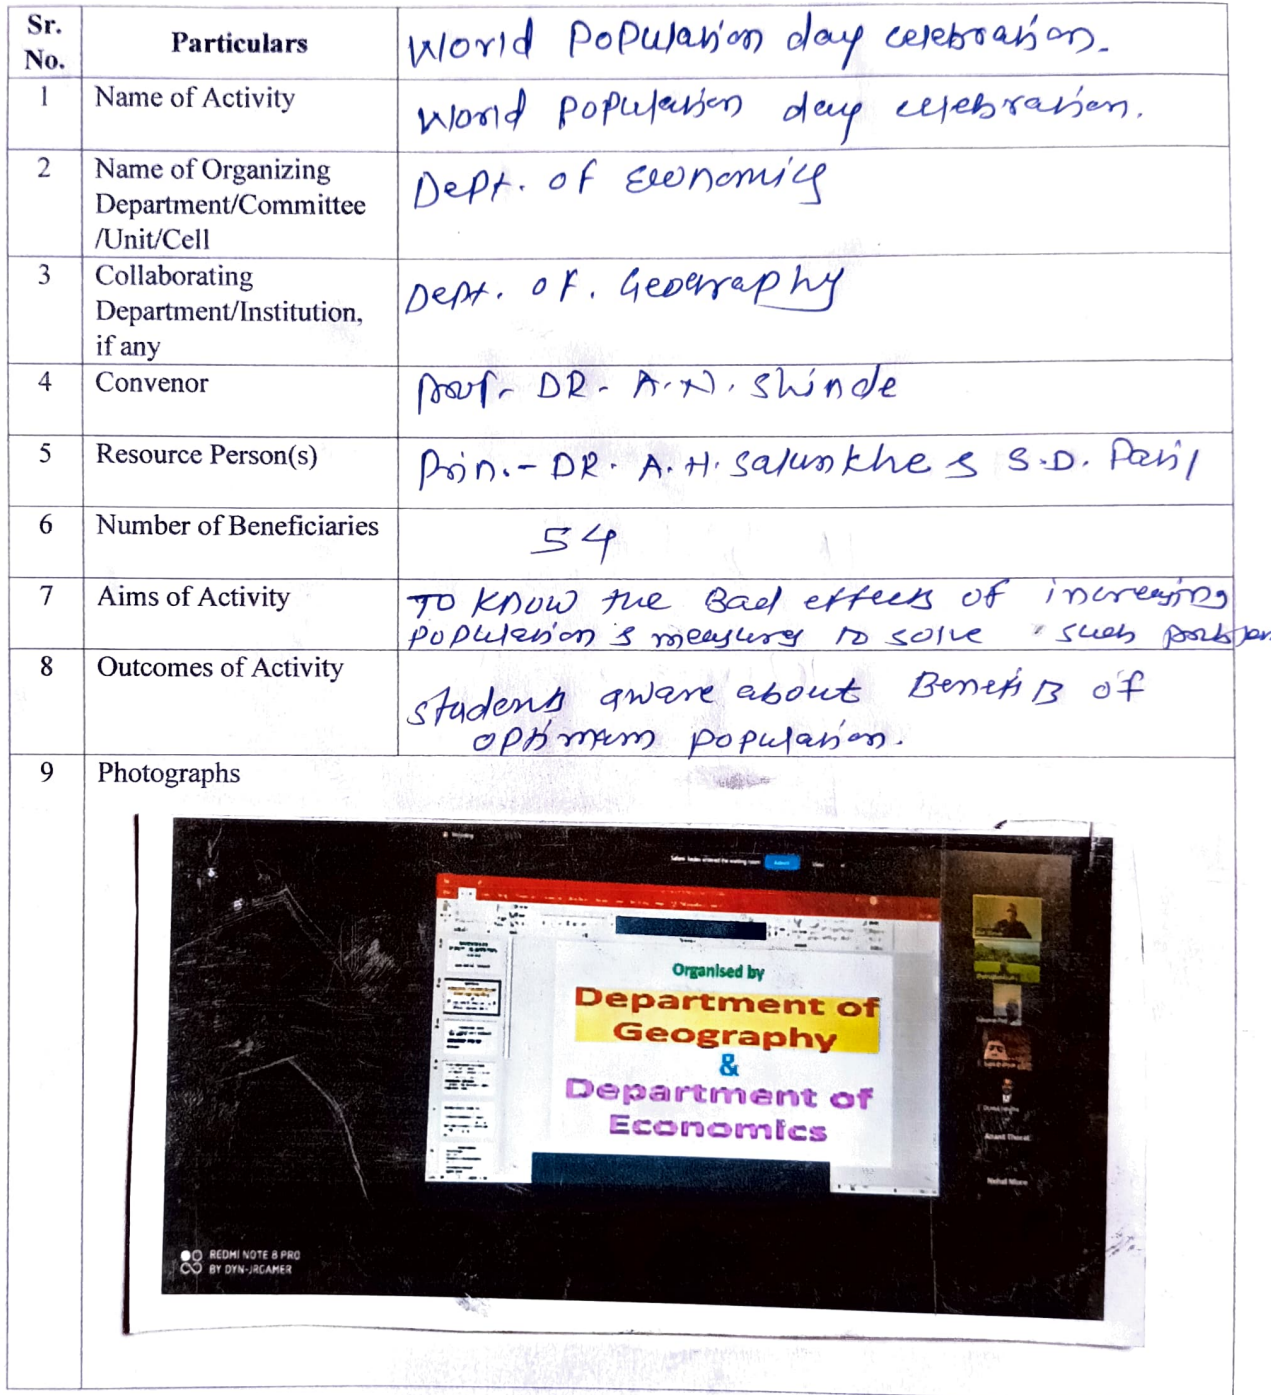 Sr. No. Particulars World Population day celebration.
1 Name of Activity World Population day celebration.
2 Name of Organizing Department/Committee /Unit/Cell Dept. of Economics
3 Collaborating Department/Institution, if any Dept. of. Geography
4 Convenor Prof. DR. A.N. Shinde
5 Resource Person(s) Prin. - DR. A.H. Salunkhe & S.D. Patil
6 Number of Beneficiaries 54
7 Aims of Activity To know the Bad effects of increasing
population & measures to solve such problem
8 Outcomes of Activity Students aware about Benefits of
optimum population.
9 Photographs
Recording
entered the waiting room Admit View
Organised by
Department of
Geography
&
Department of
Economics
Anand Thorat
Nehal More
REDMI NOTE 8 PRO
BY DYN-JRGAMER